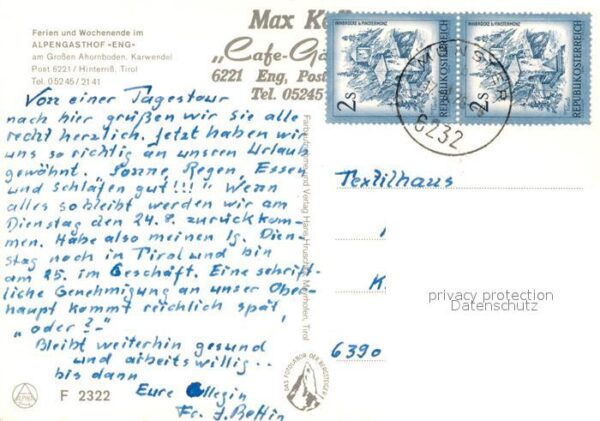 Ferien und Wochenende im
ALPENGASTHOF »ENG«
am Großen Ahornboden, Karwendel
Post 6221 / Hinterriß, Tirol
Tel. 05245 / 21 41
Max
„Cafe-
6221 Eng, Post
Tel. 05245
INNBRÜCKE b. FINSTERMÜNZ
2S
REPUBLIK ÖSTERREICH
INNBRÜCKE b. FINSTERMÜNZ
2S
REPUBLIK ÖSTERREICH
MÜNSTER
6232
Von einer Tagestour
nach hier grüßen wir Sie alle
recht herzlich. Jetzt haben wir
uns so richtig an unseren Urlaub
gewöhnt. "Sonne, Regen, Essen
und Schlafen gut!!!" Wenn
alles so bleibt werden wir am
Dienstag den 24.8. zurückkom-
men. Habe also meinen lg. Dien-
stag noch in Tirol und bin
am 25. im Geschäft. Eine schrift-
liche Genehmigung an unser Ober-
haupt kommt reichlich spät,
"oder?"
Bleibt weiterhin gesund
und arbeitswillig..
bis dann
Eure Kollegin
Fr. J.
Textilhaus
K.
6390
privacy protection
Datenschutz
DAS FOTOLABOR DER BERGSTEIGER
ALPINA
F 2322